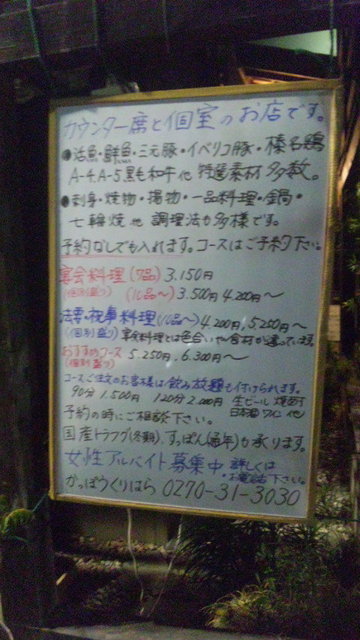 カウンター席と個室のお店です。
●活魚・鮮魚・三元豚・イベリコ豚・榛名鶏
A-4.A-5黒毛和牛他 特選素材多数。
●刺身・焼物・揚物・一品料理・鍋・
七輪焼他 調理法も多様です。
予約なしでも入れます。コースはご予約下さい。
宴会料理(7品) 3.150円
(個別盛り) (10品〜) 3.500円 4.200円〜
法要・祝事料理(10品〜) 4.200円, 5.250円〜
(個別盛り) 宴会料理とは色合いや食材が違っています。
おすすめコース 5.250円. 6.300円〜
(個別盛り)
コースご注文のお客様は飲み放題も付けられます。
90分 1.500円 120分 2.000円 生ビール 焼酎
日本酒 ワイン 他
予約の時にご相談下さい。
国産トラフグ(冬期)、すっぽん(通年)も承ります。
女性アルバイト募集中 詳しくは
お電話下さい。
かっぽうくりはら 0270-31-3030